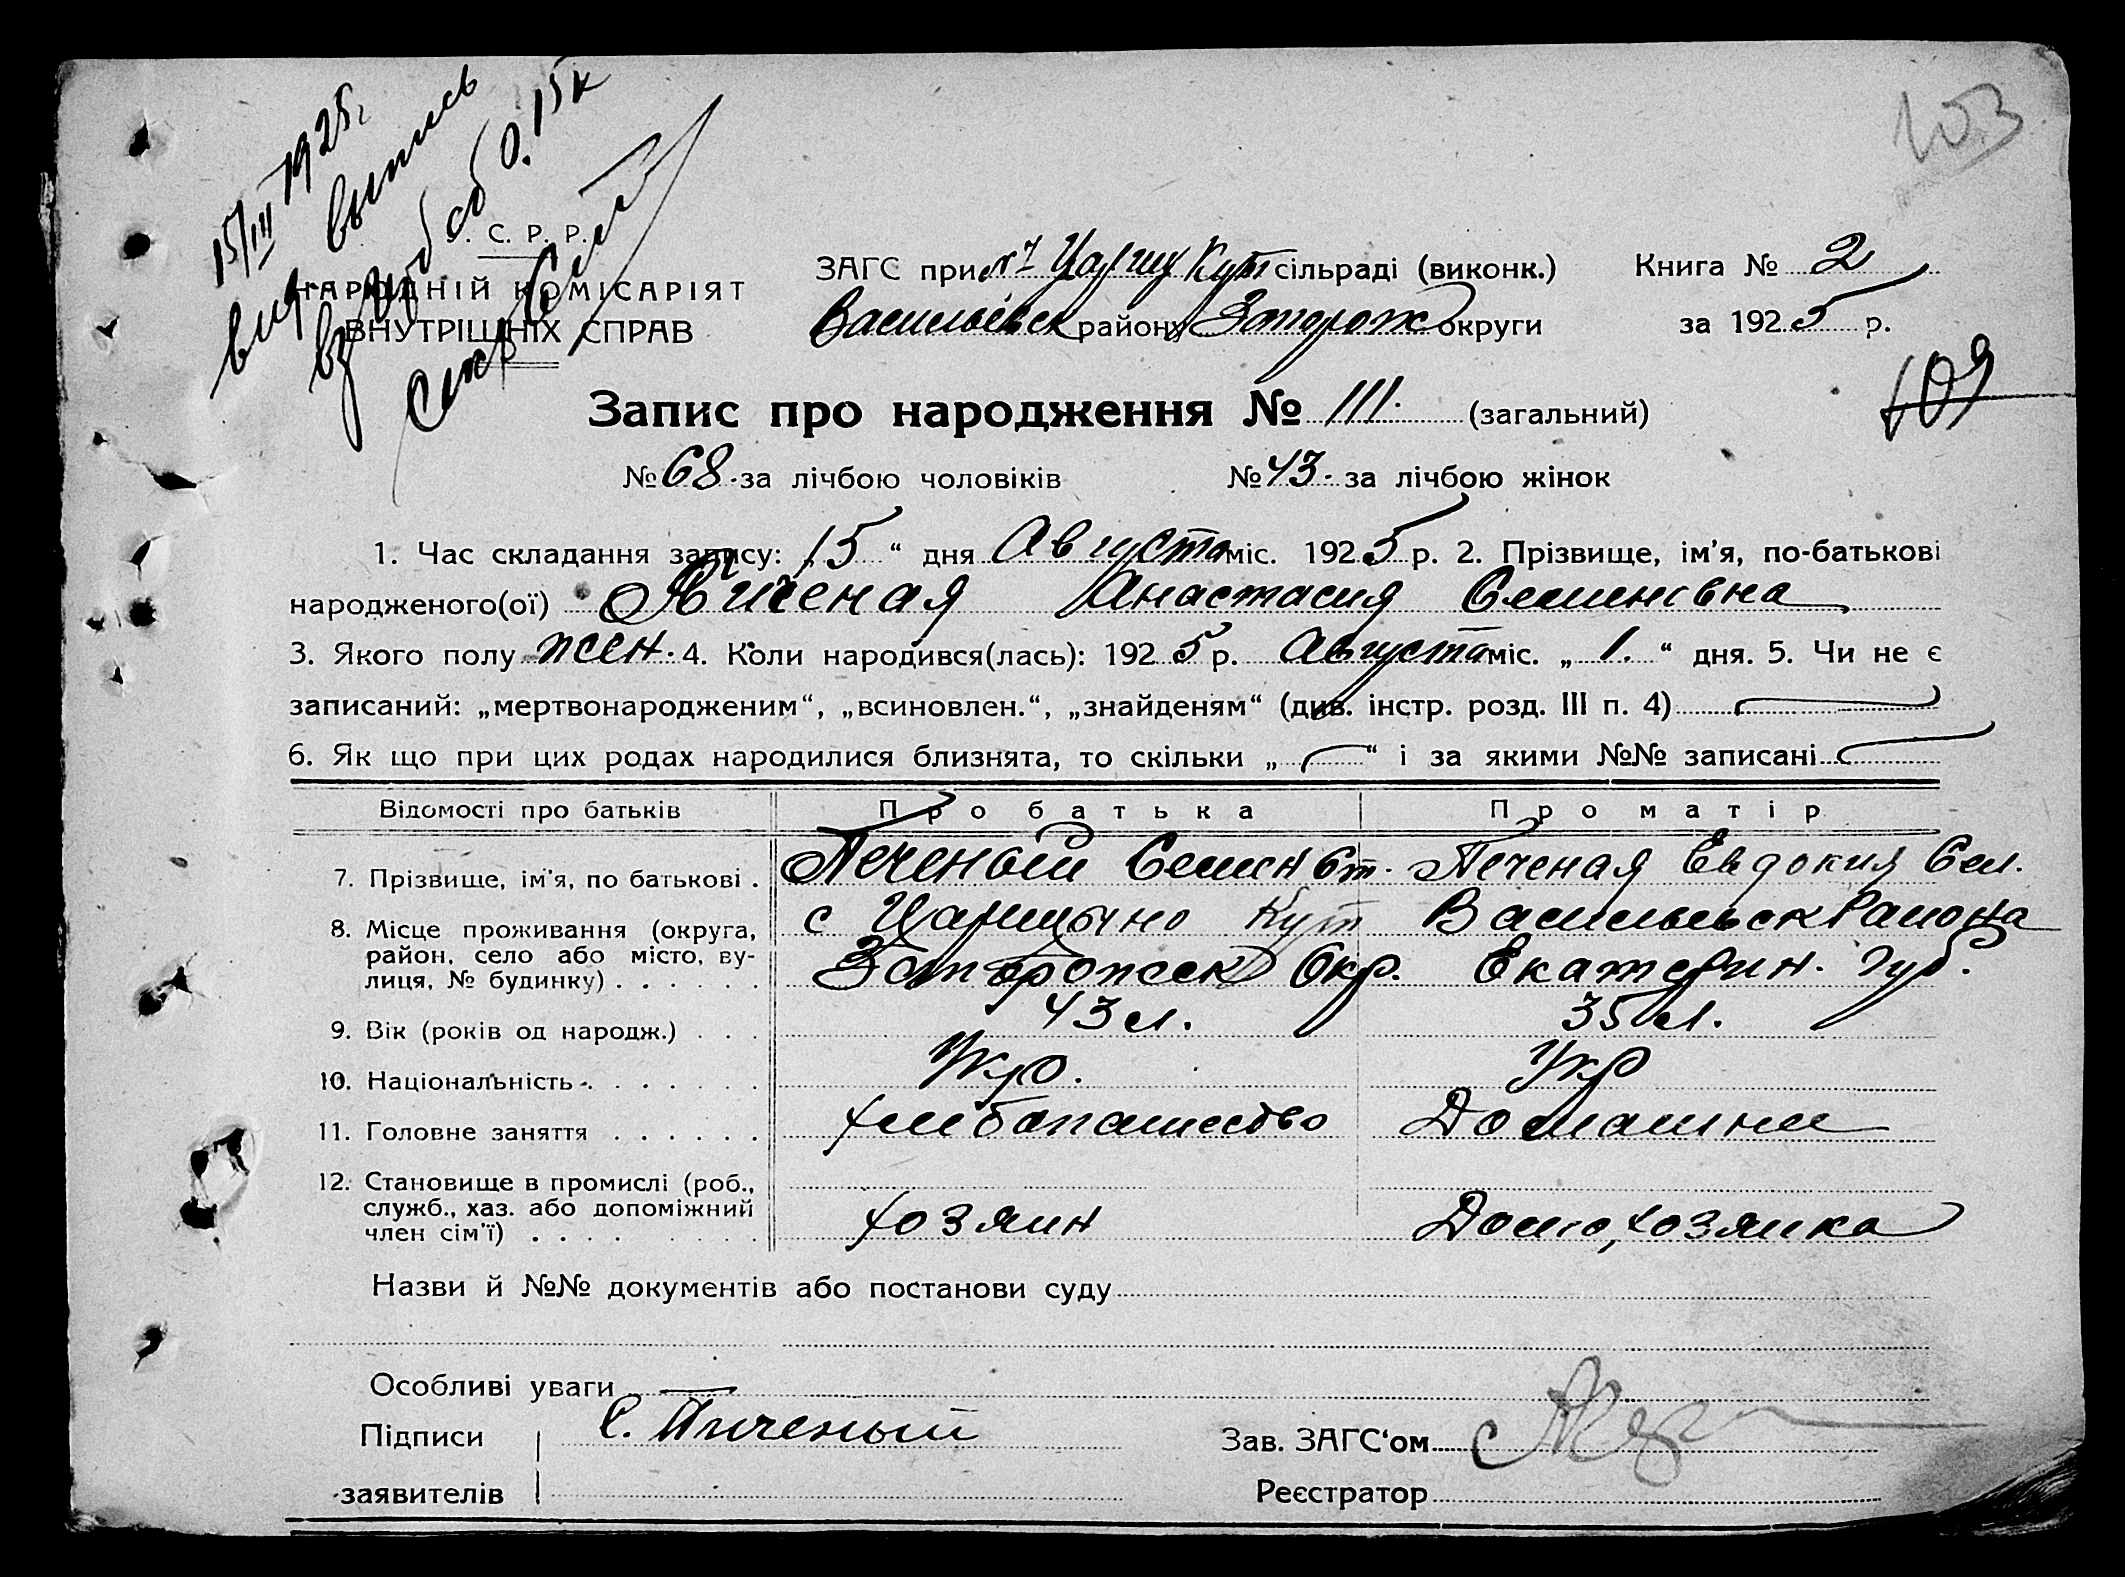 103
15/III 1925г.
выд. выпись
вз 0.15к
С. Р. Р.
НАРОДНІЙ КОМІСАРІЯТ
ВНУТРІШНІХ СПРАВ
ЗАГС при Кут сільраді (виконк.)
Книга № 2
Васильевск району Запорож округи
за 1925 р.
109
Запис про народження № 111. (загальний)
№ 68. за лічбою чоловіків № 43. за лічбою жінок
1. Час складання запису: „15“ дня Августа міс. 1925 р. 2. Прізвище, ім'я, по-батькові
народженого(ої) Печеная Анастасия Семиновна
3. Якого полу жен. 4. Коли народився(лась): 1925 р. Августа міс. „1.“ дня. 5. Чи не є
записаний: „мертвонародженим“, „всиновлен.“, „знайденям“ (див. інстр. розд. III п. 4)
6. Як що при цих родах народилися близнята, то скільки „ “ і за якими №№ записані
Відомості про батьків Про батька Про матір
7. Прізвище, ім'я, по батькові . Печеный Семен Ст. Печеная Евдокия Сем.
8. Місце проживання (округа, с Царицыно Кут Васильевск Района
район, село або місто, ву-
лиця, № будинку) . . . . . . Запорожск Окр. Екатерин. Губ.
9. Вік (років од народж.) . . . 43 л. 35 л.
10. Національність . . . . . . . Укр. Укр
11. Головне заняття . . . . . . хлебопашество Домашнее
12. Становище в промислі (роб.,
служб., хаз. або допоміжний
член сім'ї) . . . . . . . . хозяин Домо,хозяика
Назви й №№ документів або постанови суду
Особливі уваги
Підписи С. Пиченый Зав. ЗАГС'ом
заявителів Реєстратор